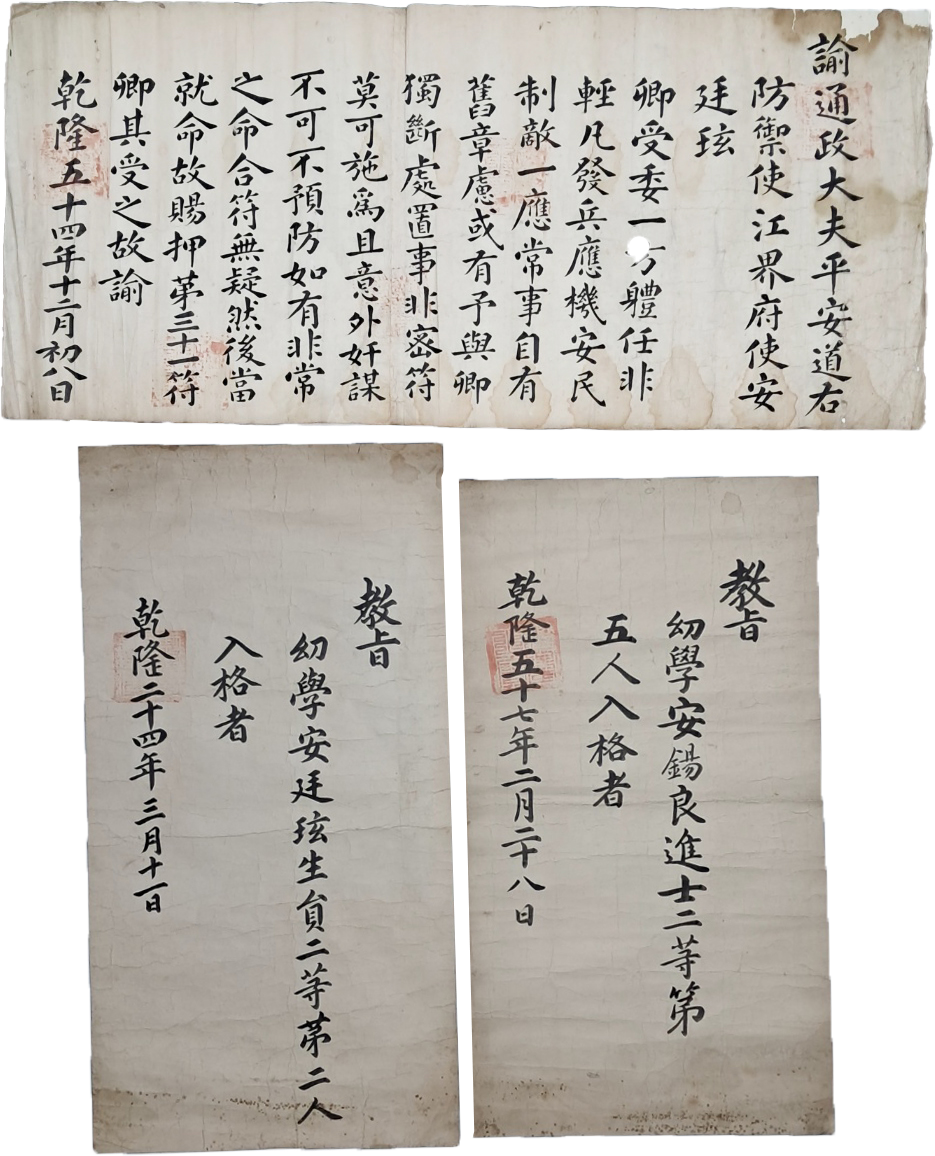 諭通政大夫平安道右
防禦使江界府使安
廷玹
卿受委一方體任非
輕凡發兵應機安民
制敵一應常事自有
舊章慮或有予與卿
獨斷處置事非密符
莫可施爲且意外奸謀
不可不預防如有非常
之命合符無疑然後當
就命故賜押第三十一符
卿其受之故諭
乾隆五十四年十二月初八日
教旨
幼學安錫良進士二等第
五人入格者
乾隆五十七年二月二十八日
教旨
幼學安廷玹生員二等第二人
入格者
乾隆二十四年三月十一日